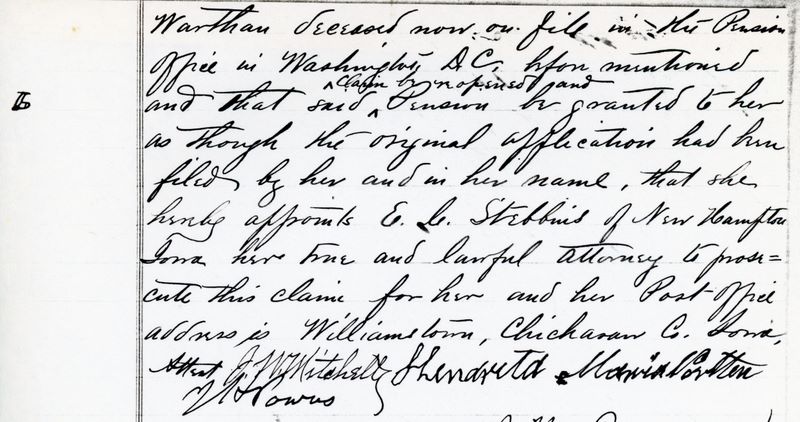 Warthan deceased now on file in the Pension
office in Washington D.C. before mentioned
claim be reopened and
and that said Pension be granted to her
as though the original application had been
filed by her and in her name, that she
hereby appoints E. C. Stebbins of New Hampton
Iowa here true and lawful attorney to prose=
cute this claim for her and her Post office
address is Williamstown, Chickasaw Co. Iowa,
Attest J W Mitchell Maria